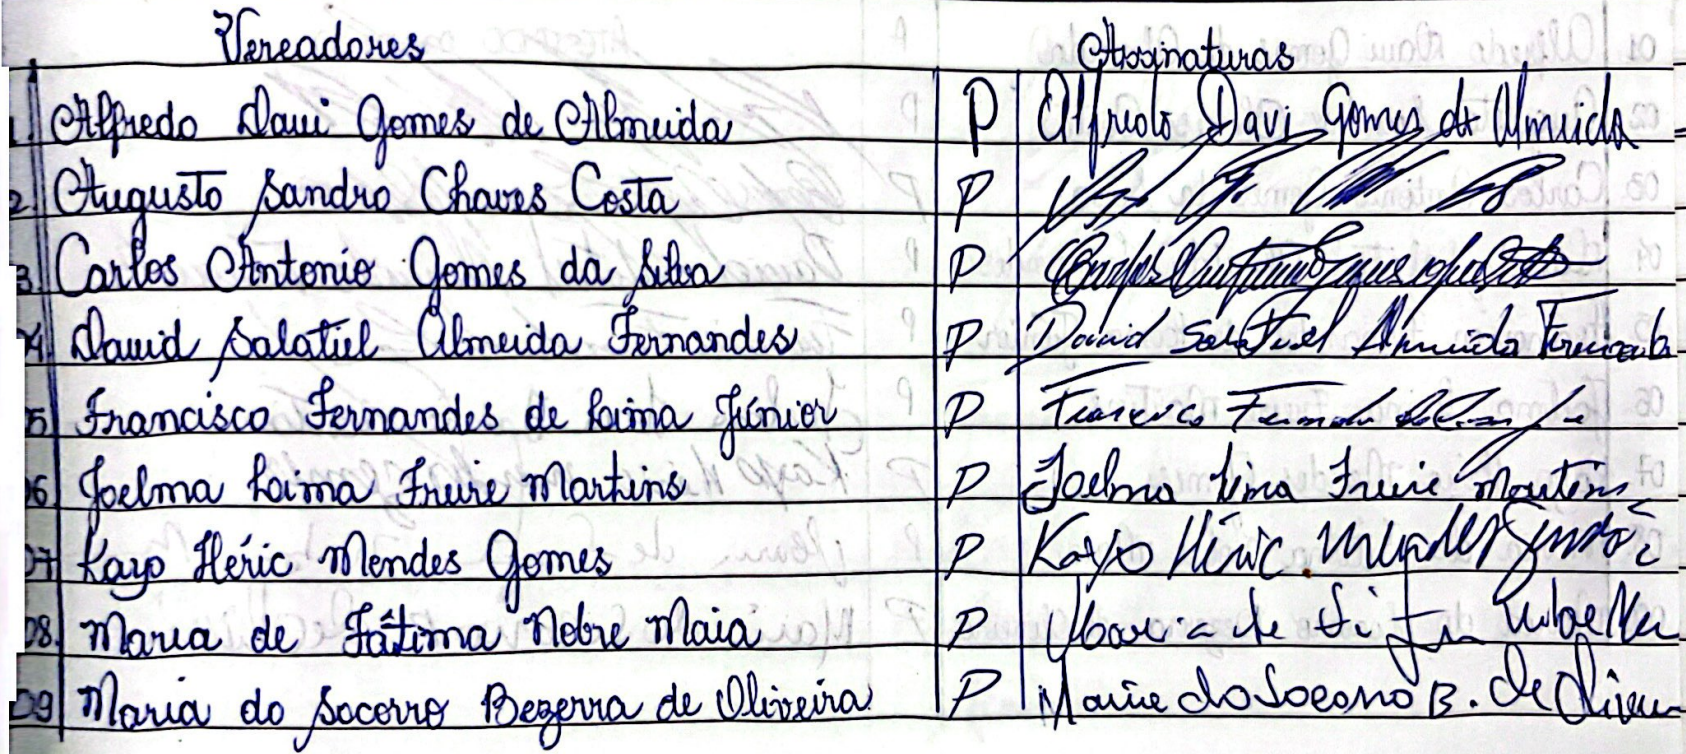 Vereadores Assinaturas
1. Alfredo Davi Gomes de Almeida P Alfredo Davi Gomes de Almeida
2. Augusto Sandro Chaves Costa P
3 Carlos Antonio Gomes da Silva P Carlos
04 David Salatiel Almeida Fernandes P David Salatiel Almeida
05 Francisco Fernandes de Lima Júnior P Francisco
06. Joelma Lima Freire Martins P Joelma Lima Freire Martins
07 Kayo Héric Mendes Gomes P Kayo Héric Mendes
08. Maria de Fátima Nobre Maia P Maria de
09 Maria do Socorro Bezerra de Oliveira P Maria do Socorro B. de